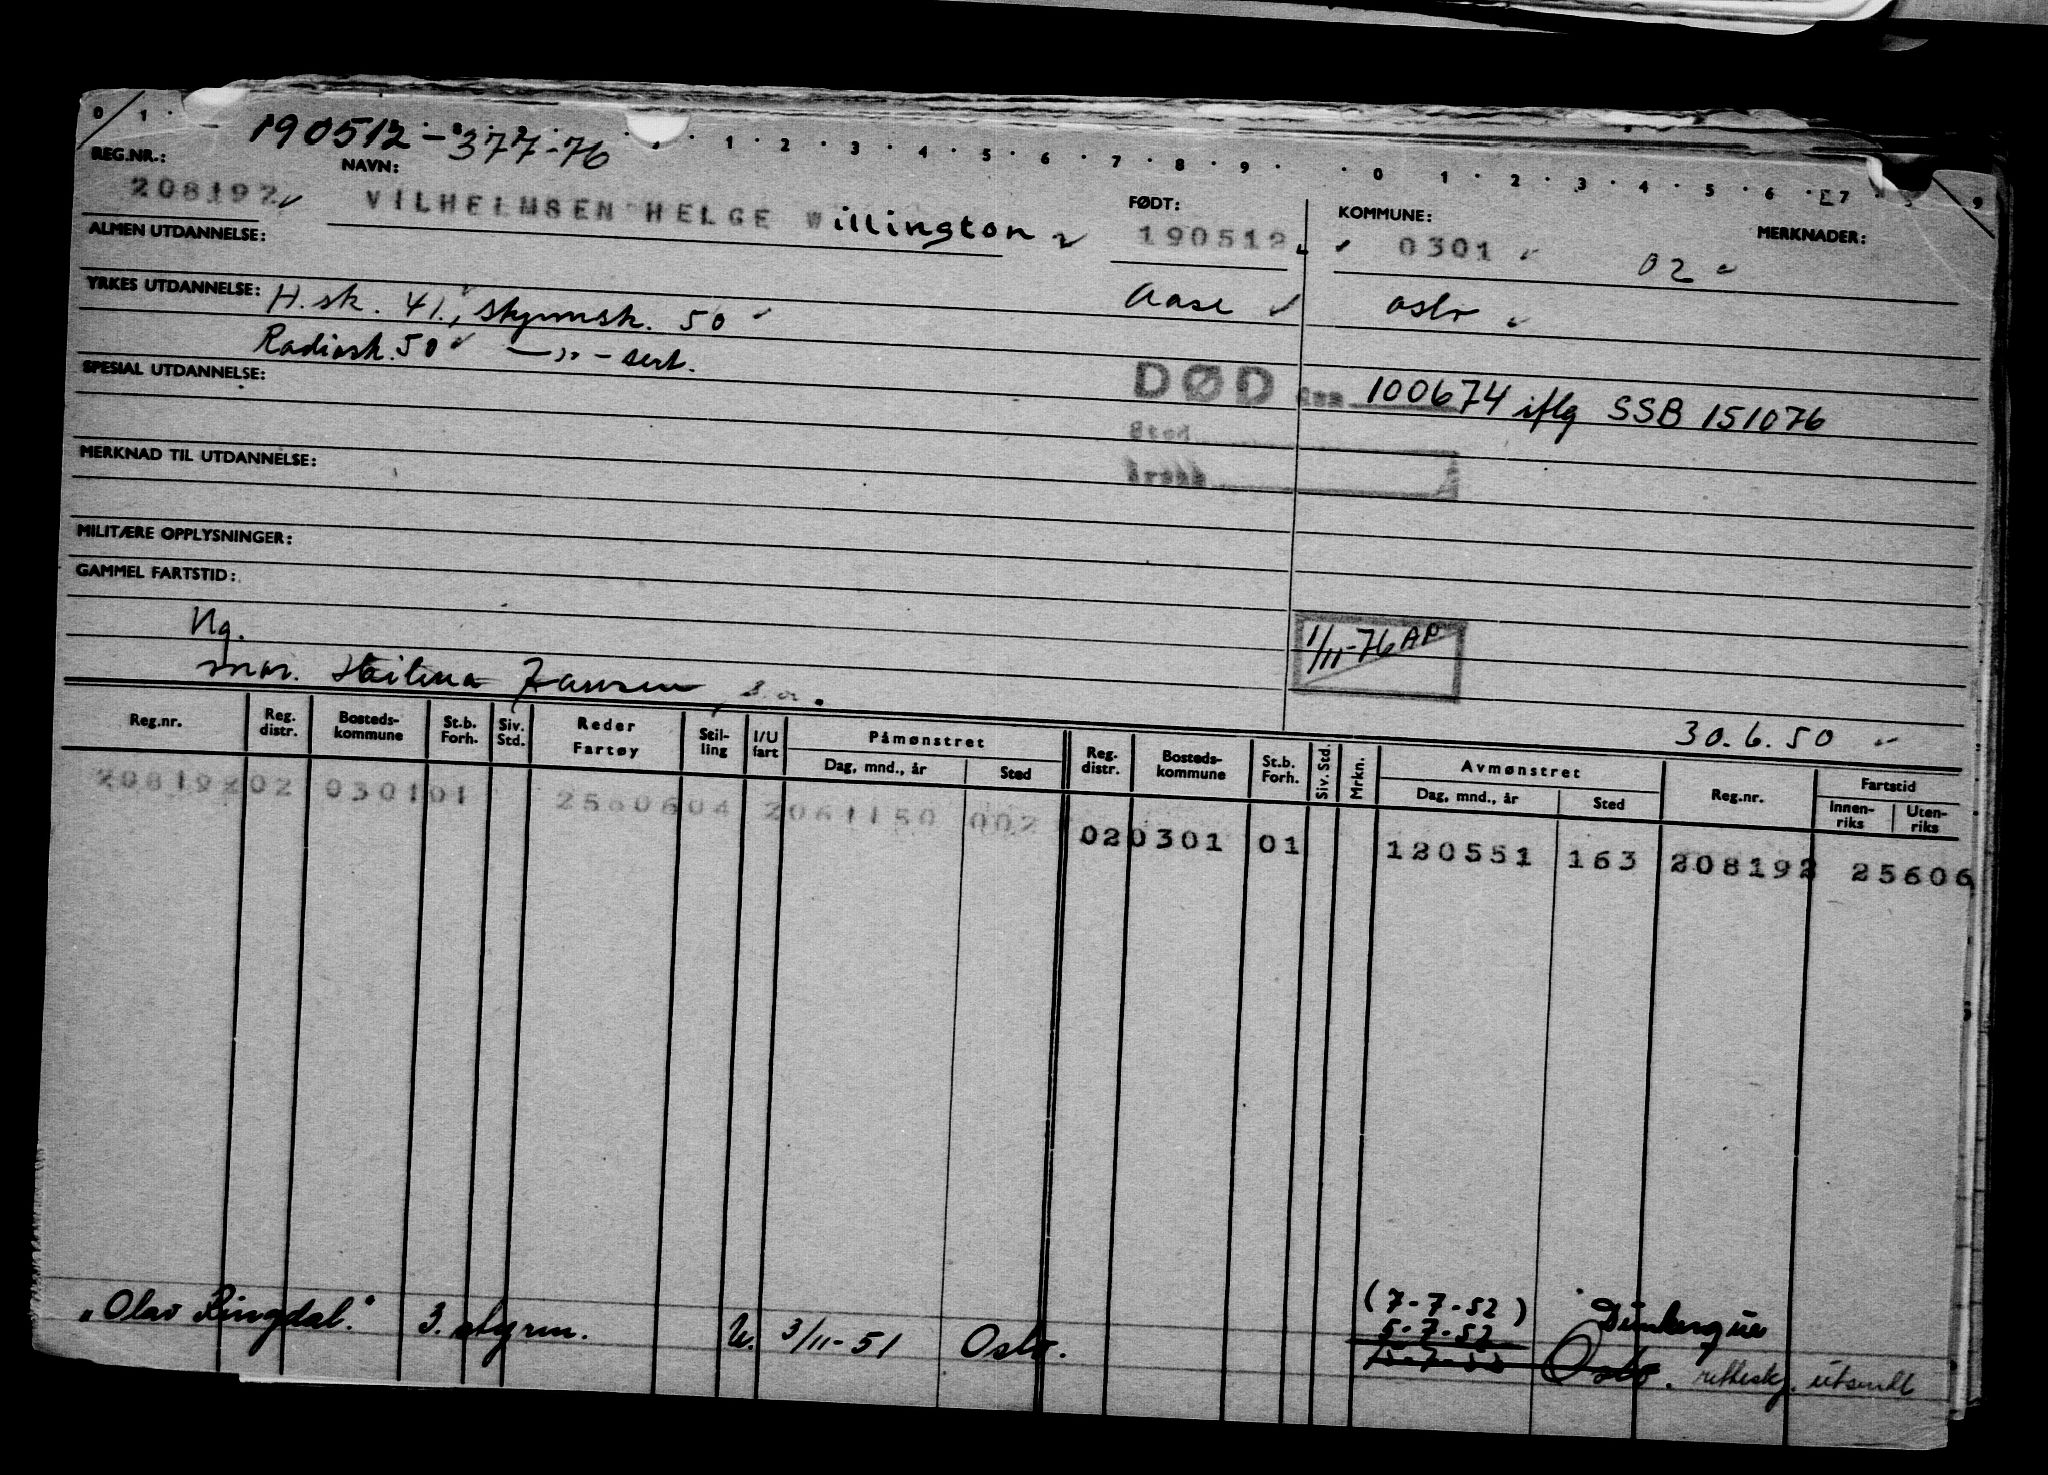 0 1 · 190512-37776 · 1 · 2 · 3 · 4 · 5 · 6 · 7 · 8 · 9 · · 0 1 · 2 · 3 · 4 · 5 · 6 · 7 9
REG.NR.: NAVN: FØDT: KOMMUNE: MERKNADER:
208192 VILHELMSEN HELGE Willington 190512 0301 02
ALMEN UTDANNELSE:
YRKES UTDANNELSE: H.sk. 41., styrmsk. 50 Aase Oslo
Radiosk. 50 —„— sert.
SPESIAL UTDANNELSE: DØD den 100674 iflg SSB 151076
Sted
Årsak
MERKNAD TIL UTDANNELSE:
MILITÆRE OPPLYSNINGER:
GAMMEL FARTSTID:
Ug. 1/11-76 AP
mor. Jansen s.a.
30.6.50
Reg.nr. Reg. distr. Bosteds-kommune St.b. Forh. Siv. Std. Reder Fartøy Stil-ling I/U fart Påmønstret Dag, mnd., år Sted Reg. distr. Bosteds-kommune St.b. Forh. Siv. Std. Mrkn. Avmønstret Dag, mnd., år Sted Reg.nr. Fartstid Innen-riks Uten-riks
208192 02 0301 01 2560604 2061150 002 02 0301 01 120551 163 208192 25606
(7-7-52) Dunkerque
"Olav Ringdal." 3. styrm. U. 3/11-51 Oslo. 5-7-52
Oslo. rettesk. utsendt